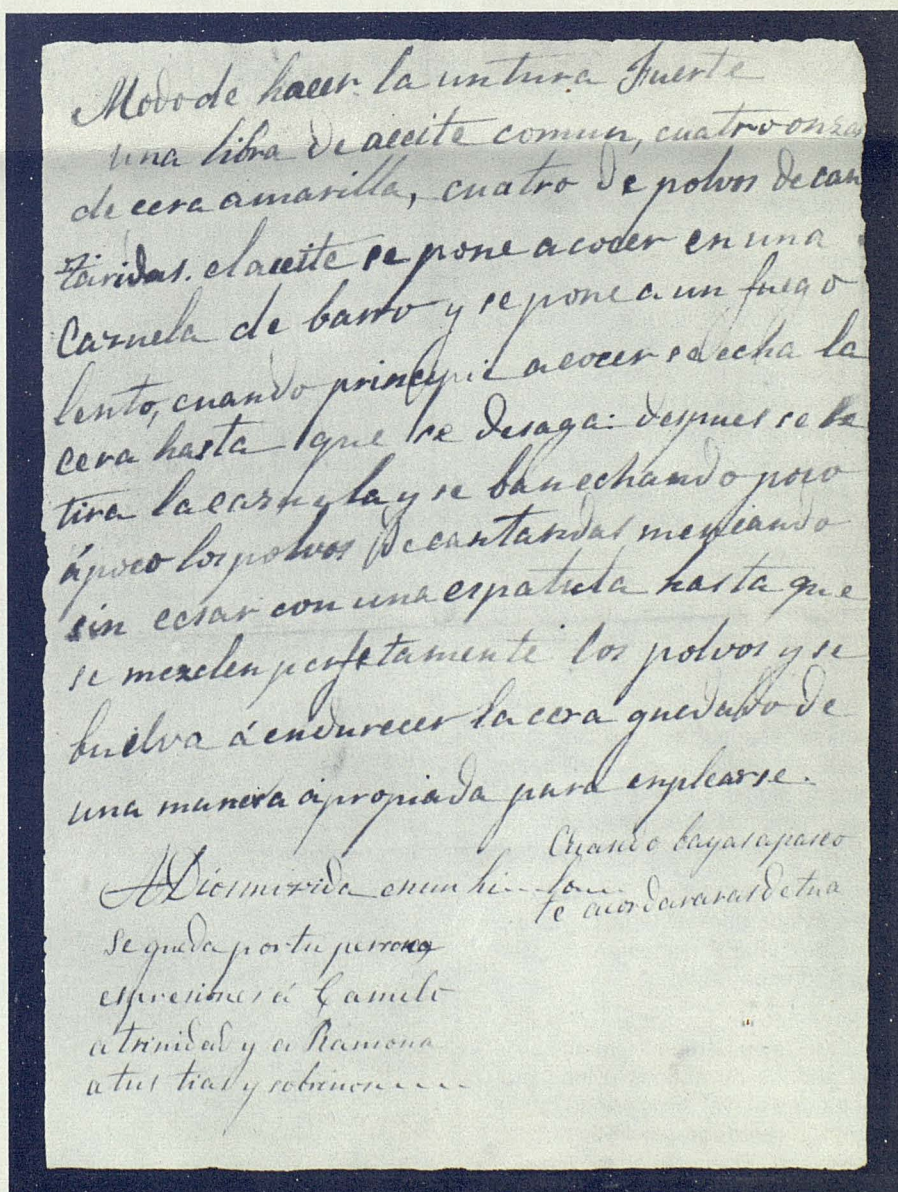 Modo de hacer la untura Fuerte
una libra de aceite comun, cuatro onza
de cera amarilla, cuatro de polvos de can
táridas. el aceite se pone a cocer en una
Cazuela de barro y se pone a un fuego
lento, cuando principie a cocer se echa la
cera hasta que se desaga: despues se re
tira la cazuyla y se ban echando poco
ápoco los polvos de cantaridas meneando
sin cesar con una espatula hasta que
se mezclen perfetamente los polvos y se
buelva á endurecer la cera quedado de
una manera ápropiada para enplearse.
Cuando bayas apaseo
te acordararas de tua
A Dios mi vida en un hi---lo---
se queda por tu persona
espresiones á Camilo
a trinidad y a Ramona
a tus tias y sobrinos----